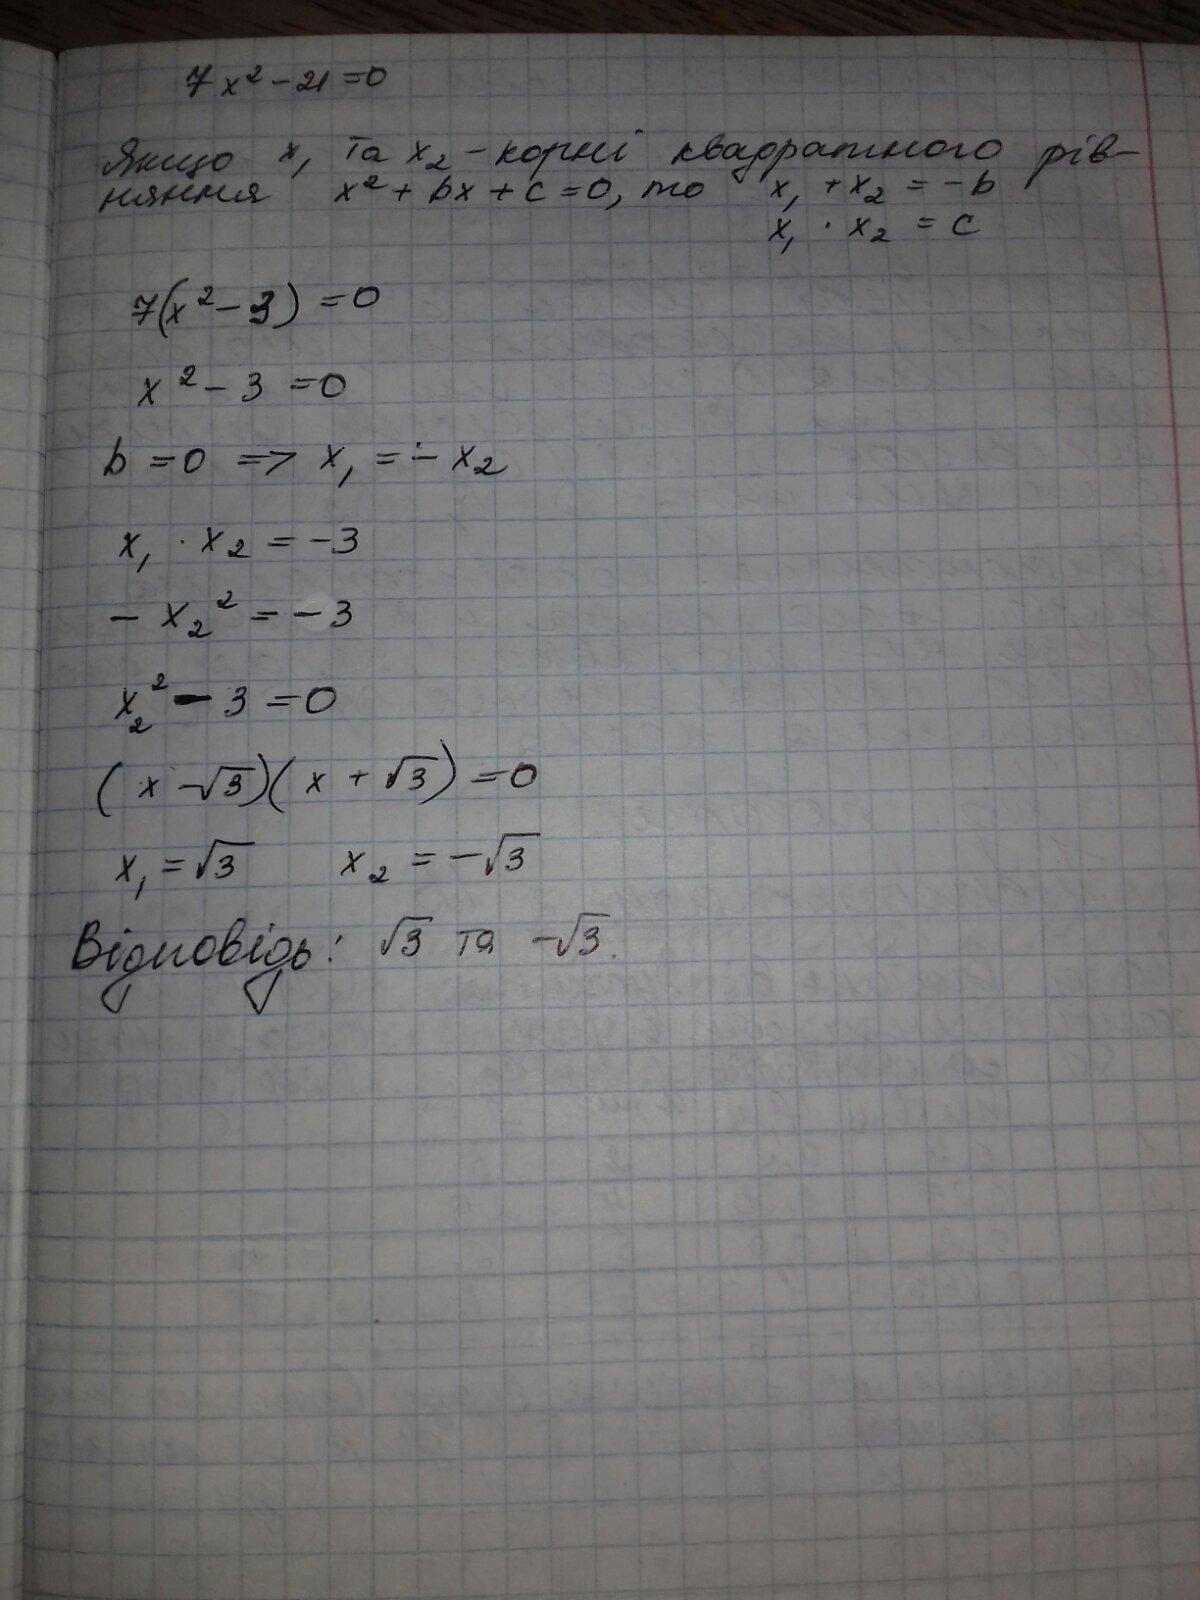 7x² - 21 = 0
Якщо x₁ та x₂ - корні квадратного рів-
няння x² + bx + c = 0, то x₁ + x₂ = -b
x₁ · x₂ = c
7(x² - 3) = 0
x² - 3 = 0
b = 0 => x₁ = - x₂
x₁ · x₂ = -3
- x₂² = - 3
x₂² - 3 = 0
(x - √3)(x + √3) = 0
x₁ = √3 x₂ = -√3
Відповідь: √3 та -√3.